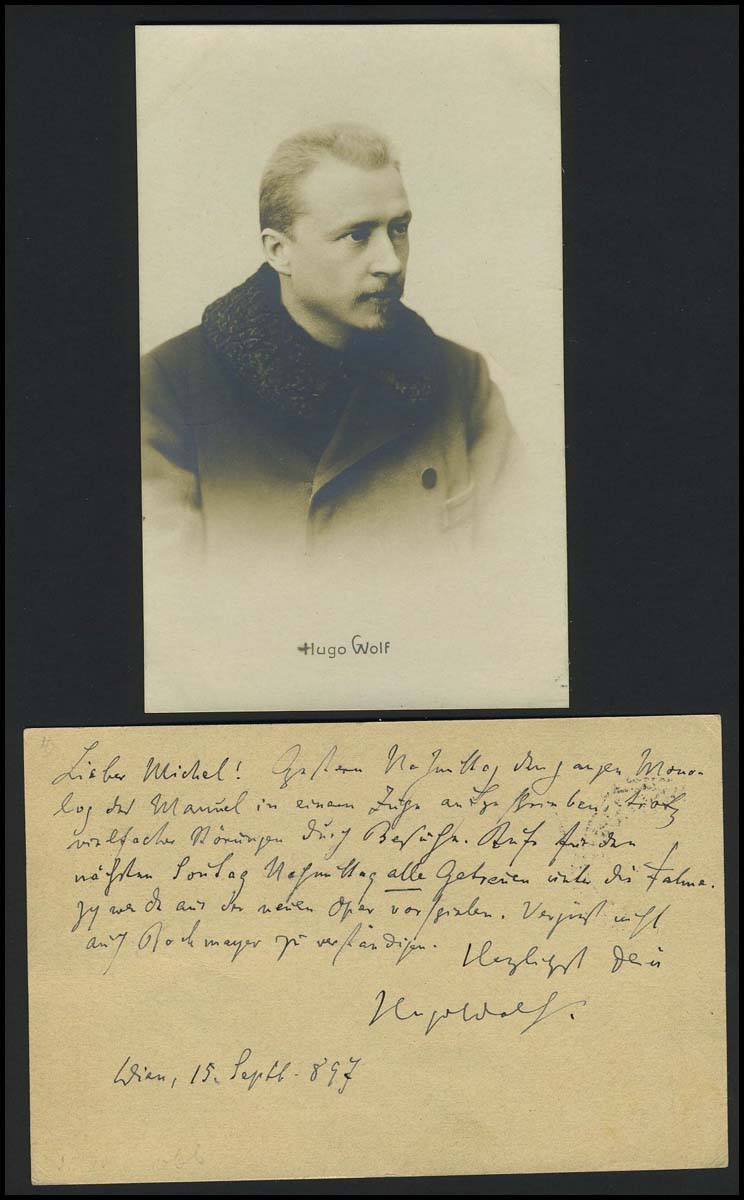 Hugo Wolf
Lieber Michel! Gestern Nachmittag den ganzen Mono-
log des Manuel in einem Zuge aufgeschrieben trotz
vielfacher Störungen durch Besuche. Rufe für den
nächsten Sontag Nachmittag alle Getreuen unter die Fahne.
Ich werde aus der neuen Oper vorspielen. Vergiss nicht
auch Rochmayer zu verständigen. Herzlichst dein
Hugo Wolf.
Wien, 15. Septb. 897